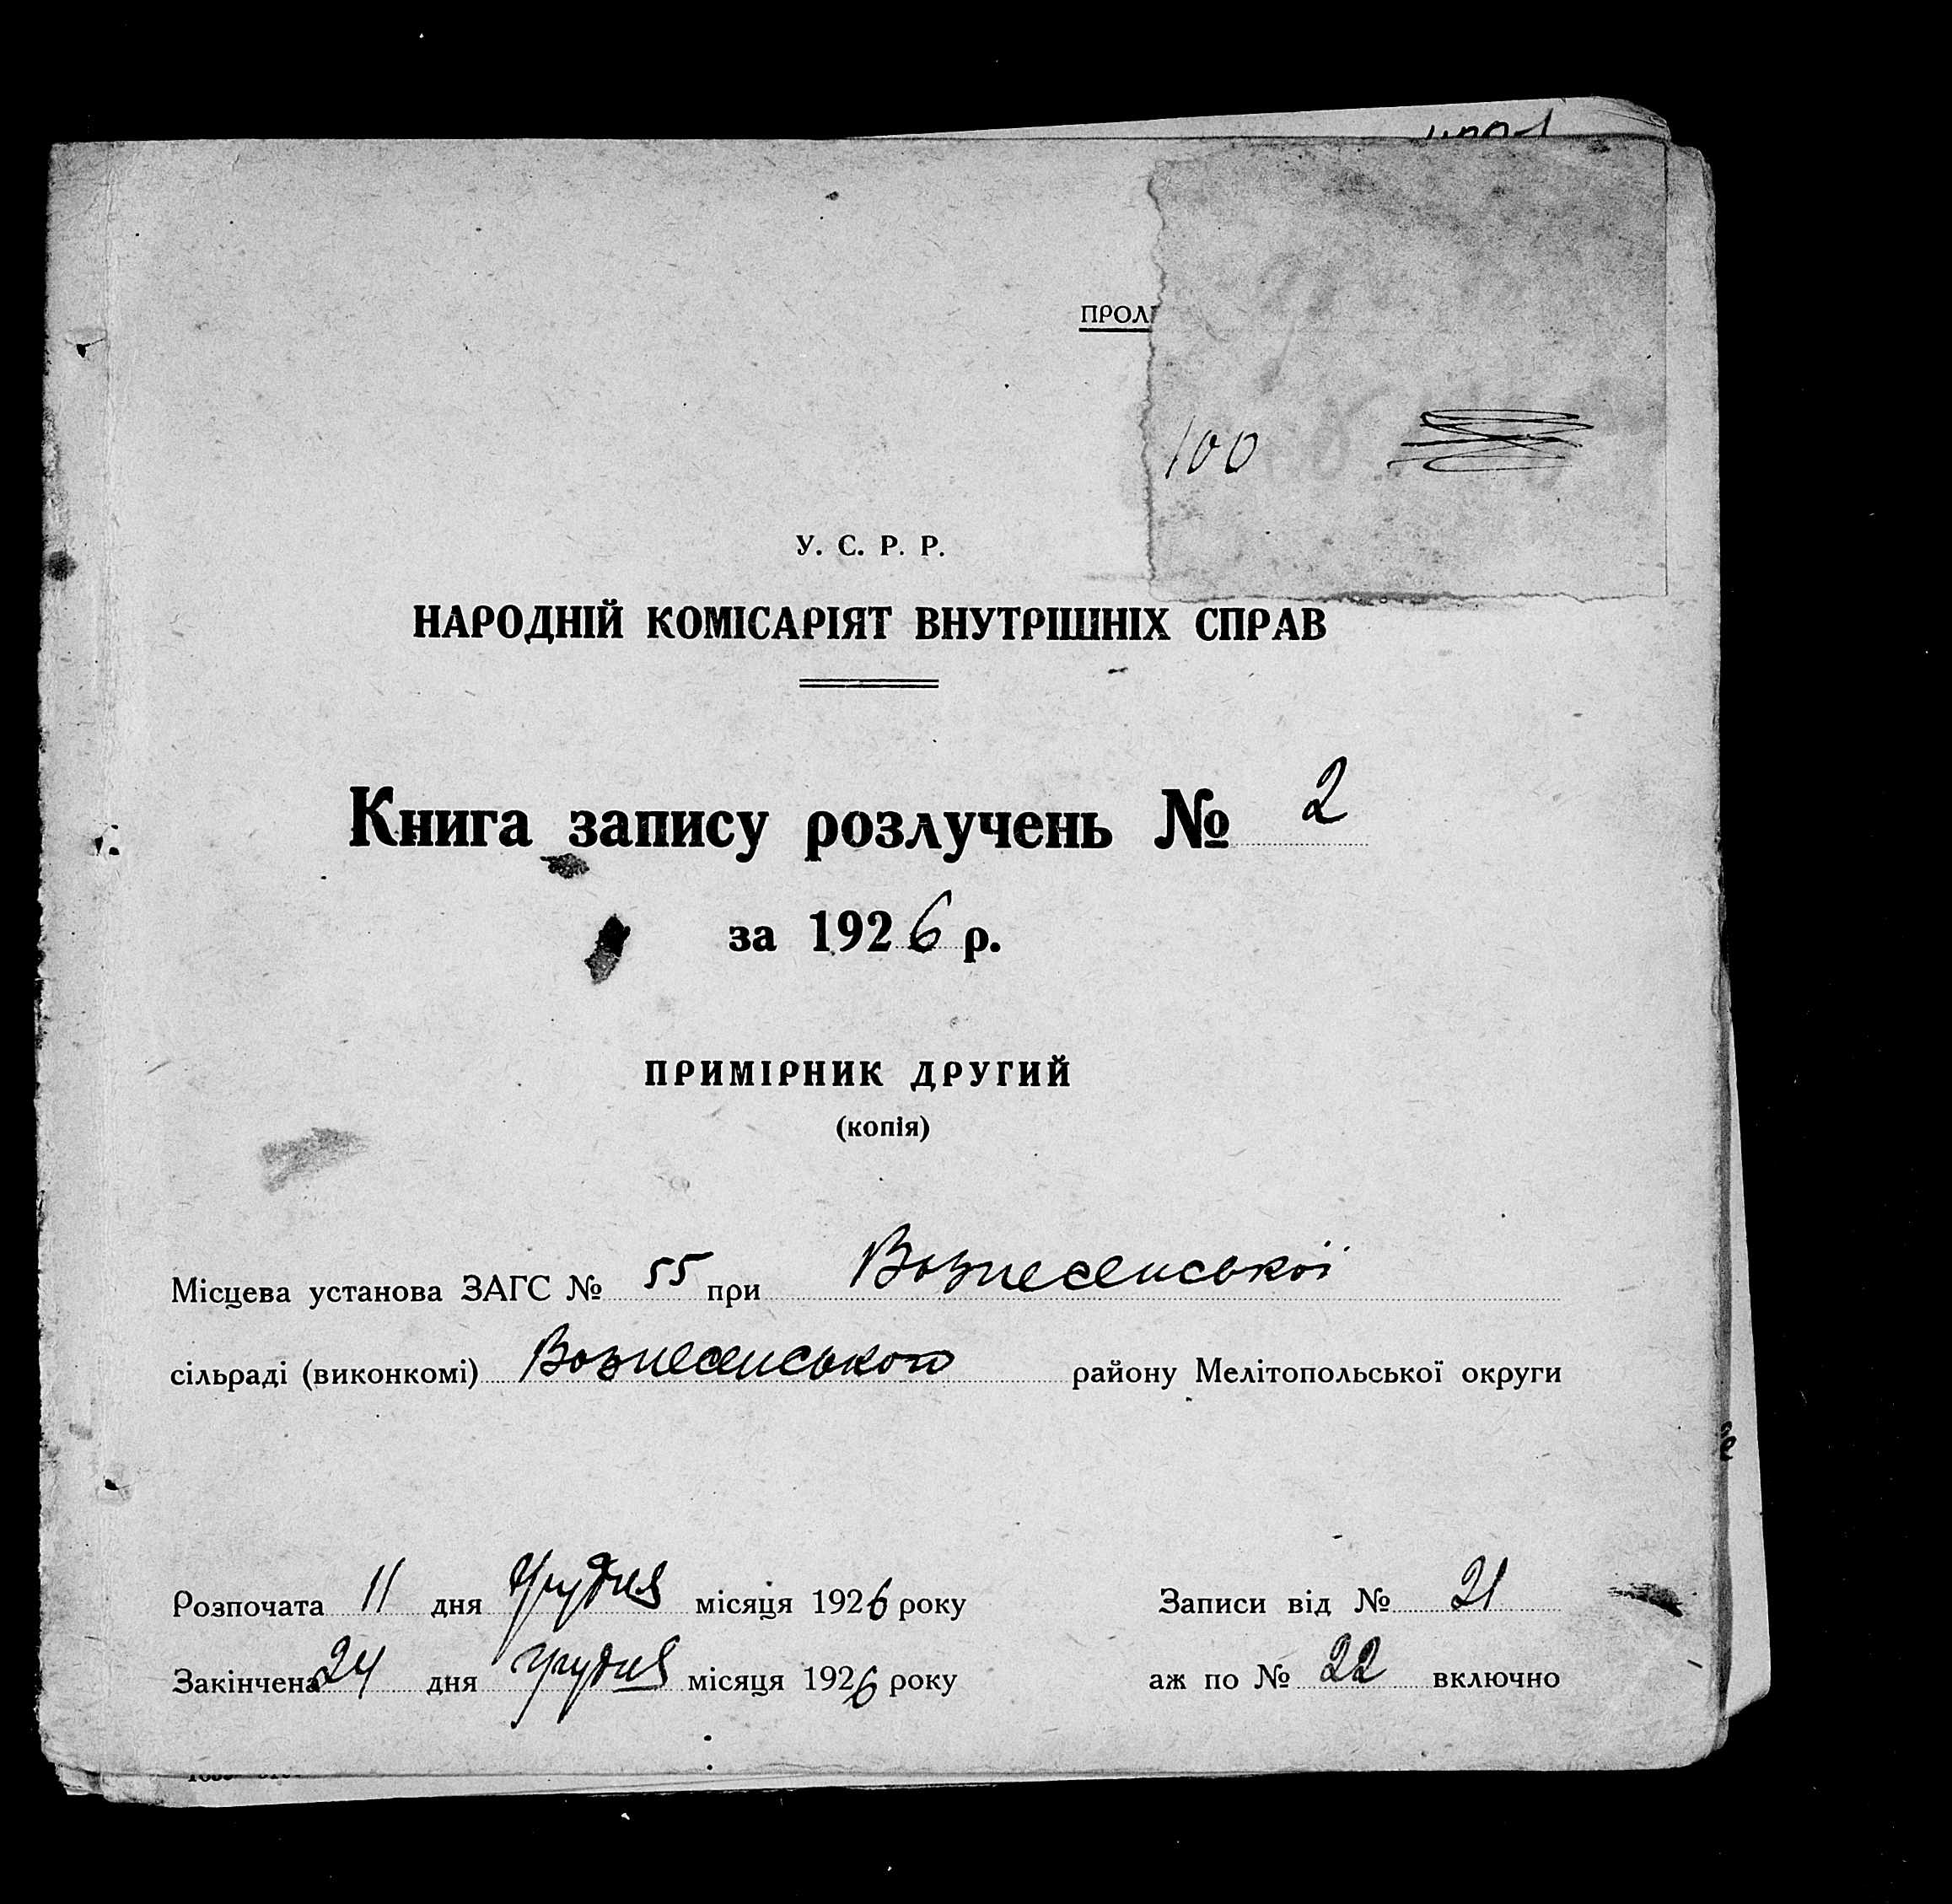 ПРОЛ
100
У. С. Р. Р.
НАРОДНІЙ КОМІСАРІЯТ ВНУТРІШНІХ СПРАВ
Книга запису розлучень № 2
за 1926 р.
ПРИМІРНИК ДРУГИЙ
(копія)
Місцева установа ЗАГС № 55 при Вознесенської
сільраді (виконкомі) Вознесенського району Мелітопольської округи
Розпочата 11 дня грудня місяця 1926 року Записи від № 21
Закінчена 24 дня грудня місяця 1926 року аж по № 22 включно